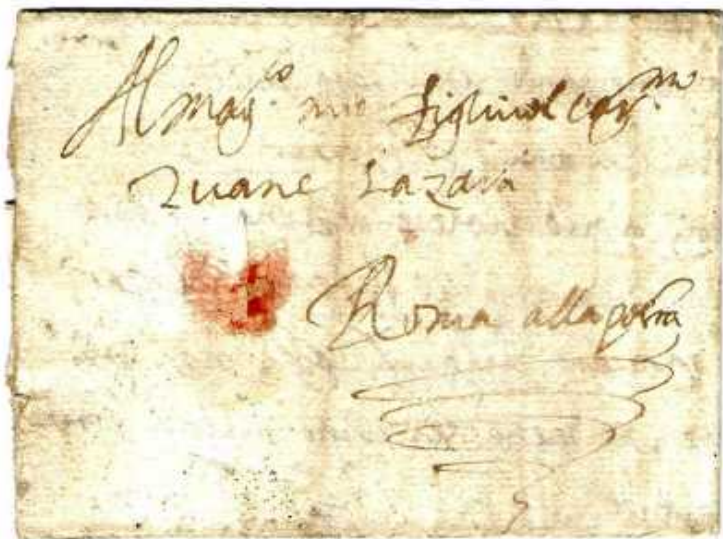 Al mag.co mio figliuol car.mo
Zuane Lazara
Roma alla posta